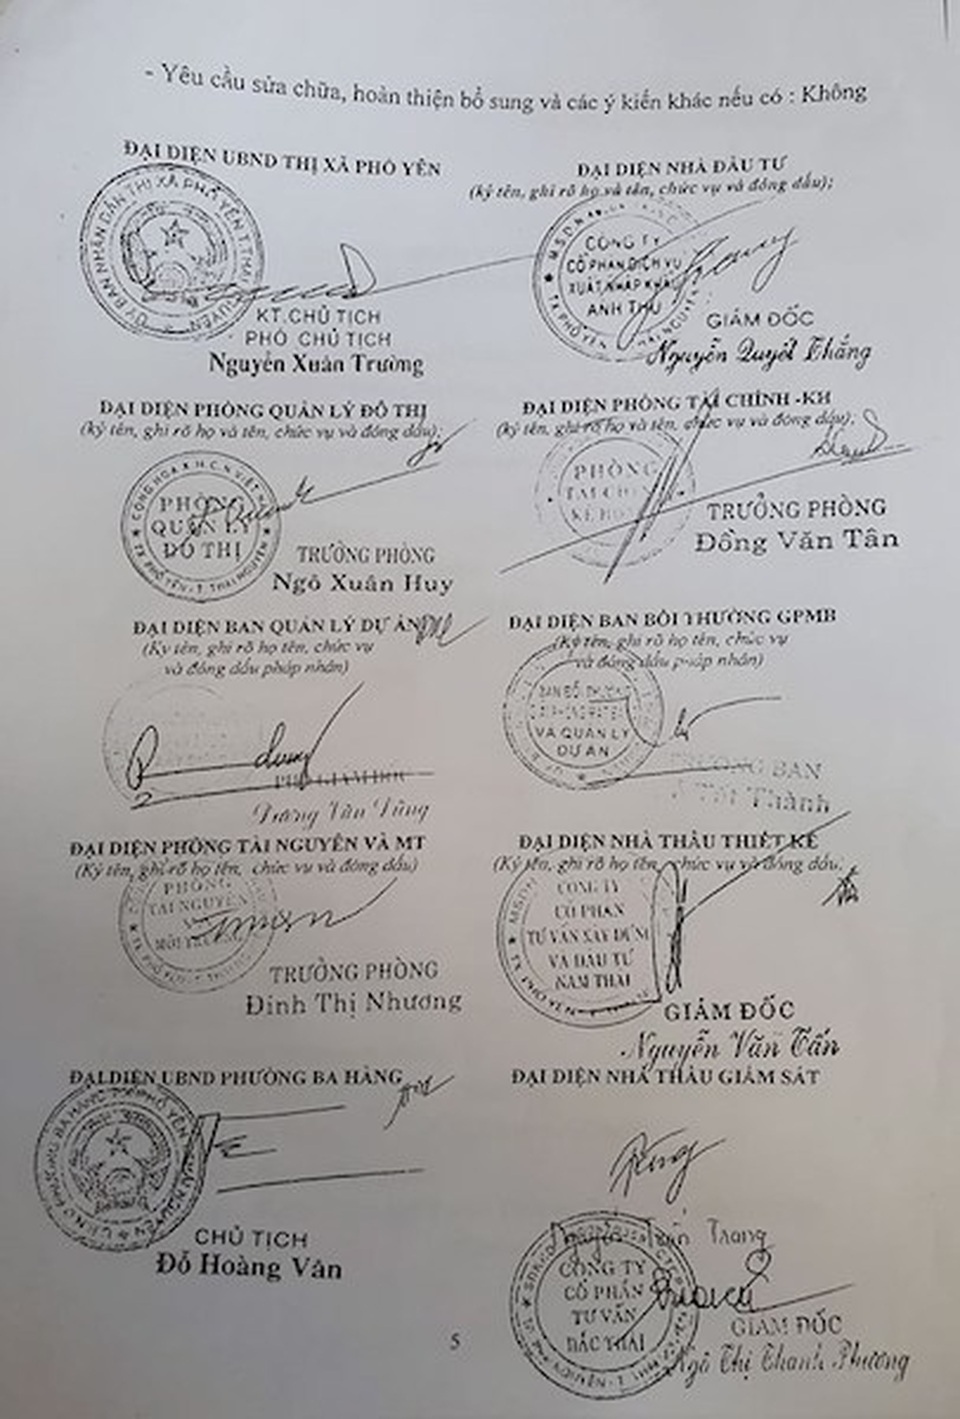 - Yêu cầu sửa chữa, hoàn thiện bổ sung và các ý kiến khác nếu có : Không
ĐẠI DIỆN UBND THỊ XÃ PHỔ YÊN
ỦY BAN NHÂN DÂN THỊ XÃ PHỔ YÊN T.THÁI NGUYÊN
KT.CHỦ TỊCH
PHÓ CHỦ TỊCH
Nguyễn Xuân Trường
ĐẠI DIỆN NHÀ ĐẦU TƯ
(ký tên, ghi rõ họ và tên, chức vụ và đóng dấu);
CÔNG TY
CỔ PHẦN DỊCH VỤ
XUẤT NHẬP KHẨU
ANH THƯ
GIÁM ĐỐC
Nguyễn Quyết Thắng
ĐẠI DIỆN PHÒNG QUẢN LÝ ĐÔ THỊ
(ký tên, ghi rõ họ và tên, chức vụ và đóng dấu);
CỘNG HOÀ X.H.C.N VIỆT NAM
PHÒNG
QUẢN LÝ
ĐÔ THỊ
TX.PHỔ YÊN - T. THÁI NGUYÊN
TRƯỞNG PHÒNG
Ngô Xuân Huy
ĐẠI DIỆN PHÒNG TÀI CHÍNH -KH
(ký tên, ghi rõ họ và tên, chức vụ và đóng dấu);
PHÒNG
TÀI CHÍNH
TRƯỞNG PHÒNG
Đồng Văn Tân
ĐẠI DIỆN BAN QUẢN LÝ DỰ ÁN
(Ký tên, ghi rõ họ tên, chức vụ
và đóng dấu pháp nhân)
PHÓ GIÁM ĐỐC
Dương Văn Dũng
ĐẠI DIỆN BAN BỒI THƯỜNG GPMB
(Ký tên, ghi rõ họ tên, chức vụ
và đóng dấu pháp nhân)
BAN BỒI THƯỜNG
VÀ QUẢN LÝ
DỰ ÁN
TRƯỞNG BAN
Thành
ĐẠI DIỆN PHÒNG TÀI NGUYÊN VÀ MT
(Ký tên, ghi rõ họ tên, chức vụ và đóng dấu)
PHÒNG
TÀI NGUYÊN
MÔI TRƯỜNG
TRƯỞNG PHÒNG
Đinh Thị Nhương
ĐẠI DIỆN NHÀ THẦU THIẾT KẾ
(Ký tên, ghi rõ họ tên, chức vụ và đóng dấu;
CÔNG TY
CỔ PHẦN
TƯ VẤN XÂY DỰNG
VÀ ĐẦU TƯ
NAM THÁI
GIÁM ĐỐC
Nguyễn Văn Tấn
ĐẠI DIỆN UBND PHƯỜNG BA HÀNG
CHỦ TỊCH
Đỗ Hoàng Vân
ĐẠI DIỆN NHÀ THẦU GIÁM SÁT
Trang
CÔNG TY
CỔ PHẦN
TƯ VẤN
BẮC THÁI
GIÁM ĐỐC
Ngô Thị Thanh Phương
5